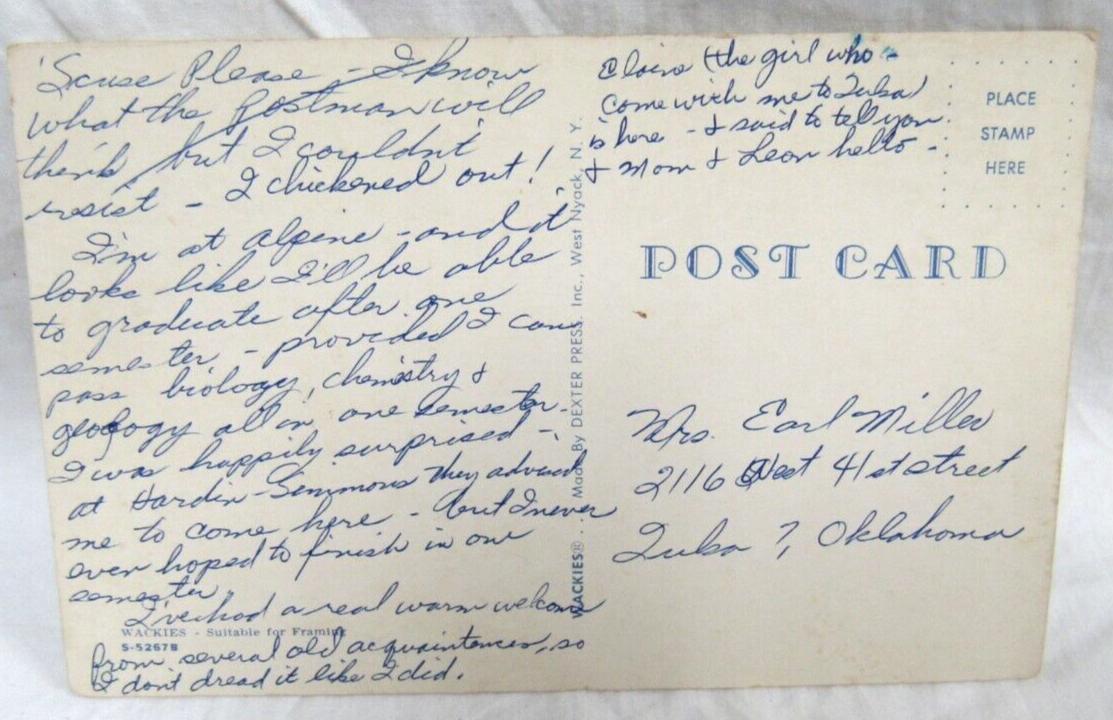 'Scuse Please - I know
what the postman will
think, but I couldn't
resist - I chickened out!
I'm at Alpine - and it
looks like I'll be able
to graduate after one
semester - provided I can
pass biology, chemistry &
geology all in one semester.
I was happily surprised -
at Hardin-Simmons they advised
me to come here - but I never
even hoped to finish in one
semester.
I've had a real warm welcome
from several old acquaintences, so
I don't dread it like I did.
WACKIES - Suitable for Framing
S-5267B
WACKIES® . . Made By DEXTER PRESS, Inc., West Nyack, N. Y.
Elaine (the girl who
come with me to Tulsa)
is here - I said to tell you
& Mom & Leon hello -
PLACE
STAMP
HERE
POST CARD
Mrs. Earl Miller
2116 West 41st Street
Tulsa 7, Oklahoma